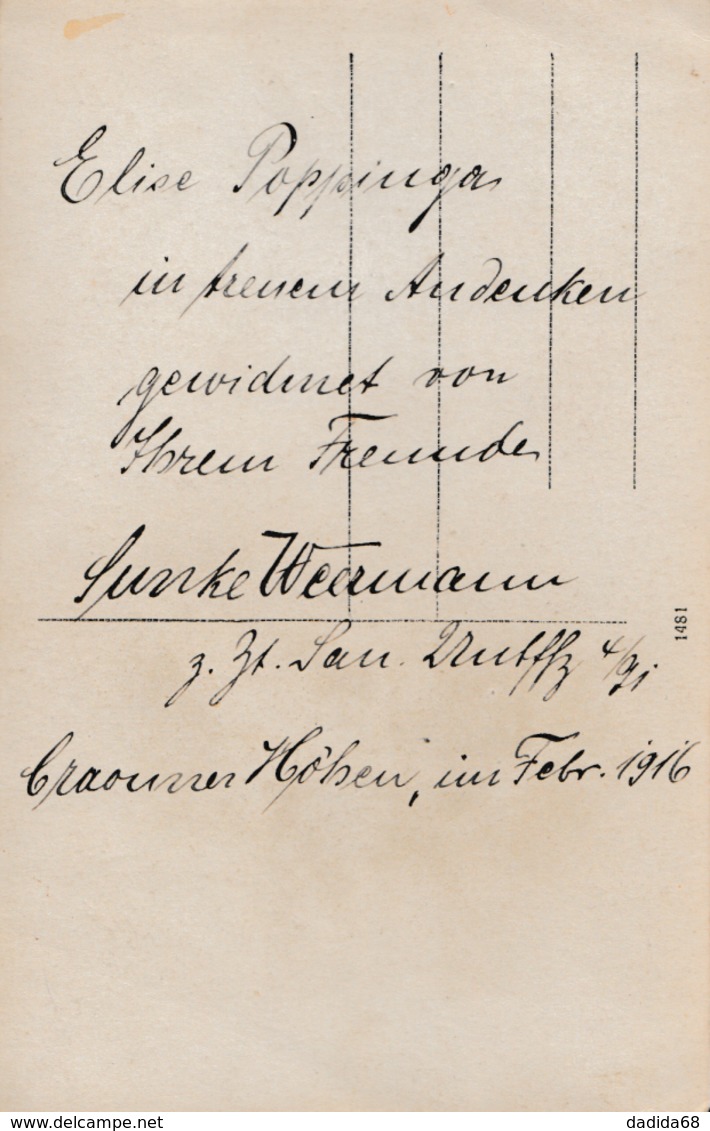 Elise Poppinga
in treuem Andenken
gewidmet von
Ihrem Freunde
Sunke Weermann
z. Zt. San. Untffz 4/91
Craonner Höhen, im Febr. 1916
1481
delcampe.net
dadida68